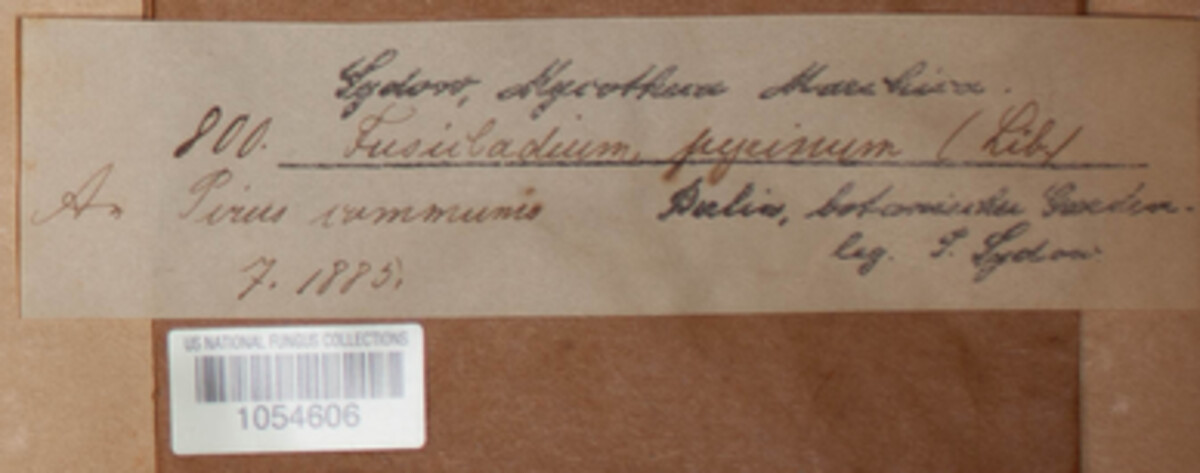 Sydow, Mycotheca Marchica.
800. Fusicladium pyrinum (Lib)
An Pirus communis Berlin, botanischer Garten.
7. 1885. leg. P. Sydow
US NATIONAL FUNGUS COLLECTIONS
1054606